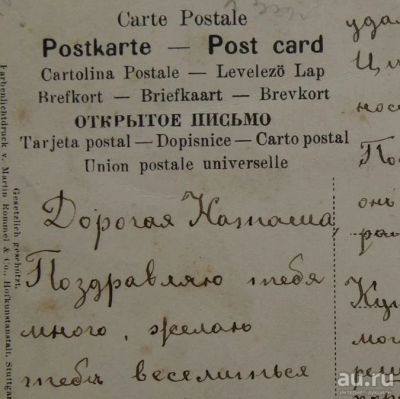 Carte Postale
Postkarte — Post card
Cartolina Postale — Levelező Lap
Brefkort — Briefkaart — Brevkort
ОТКРЫТОЕ ПИСЬМО
Tarjeta postal — Dopisnice — Carto postal
Union postale universelle
Farbenlichtdruck v. Martin Rommel & Co., Hofkunstanstalt, Stuttgart
Gesetzlich geschützt.
Дорогая Наташа,
Поздравляю тебя
много, желаю
тебѣ веселиться
уда
нос
По
онъ
Ку
мог
реш
au.ru